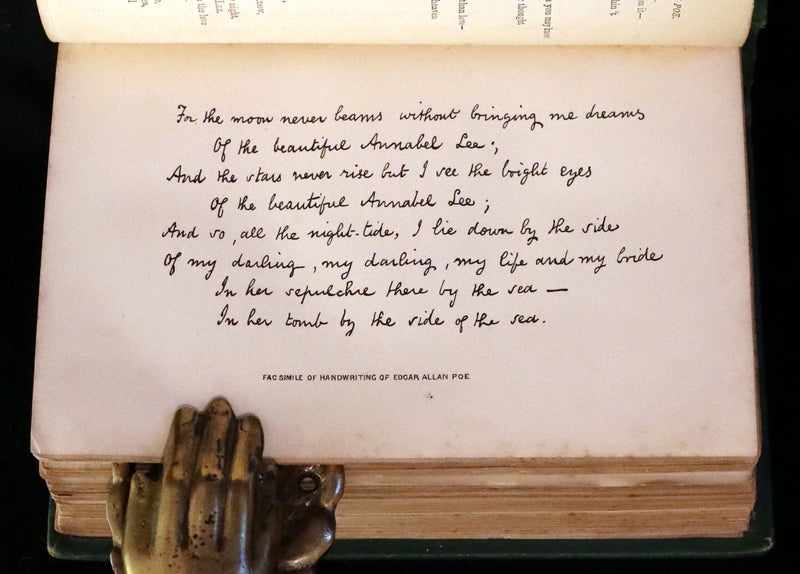 POE.
For the moon never beams without bringing me dreams
Of the beautiful Annabel Lee:,
And the stars never rise but I see the bright eyes
Of the beautiful Annabel Lee;
And so, all the night-tide, I lie down by the side
Of my darling, my darling, my life and my bride
In her sepulchre there by the sea —
In her tomb by the side of the sea.
FAC SIMILE OF HANDWRITING OF EDGAR ALLAN POE